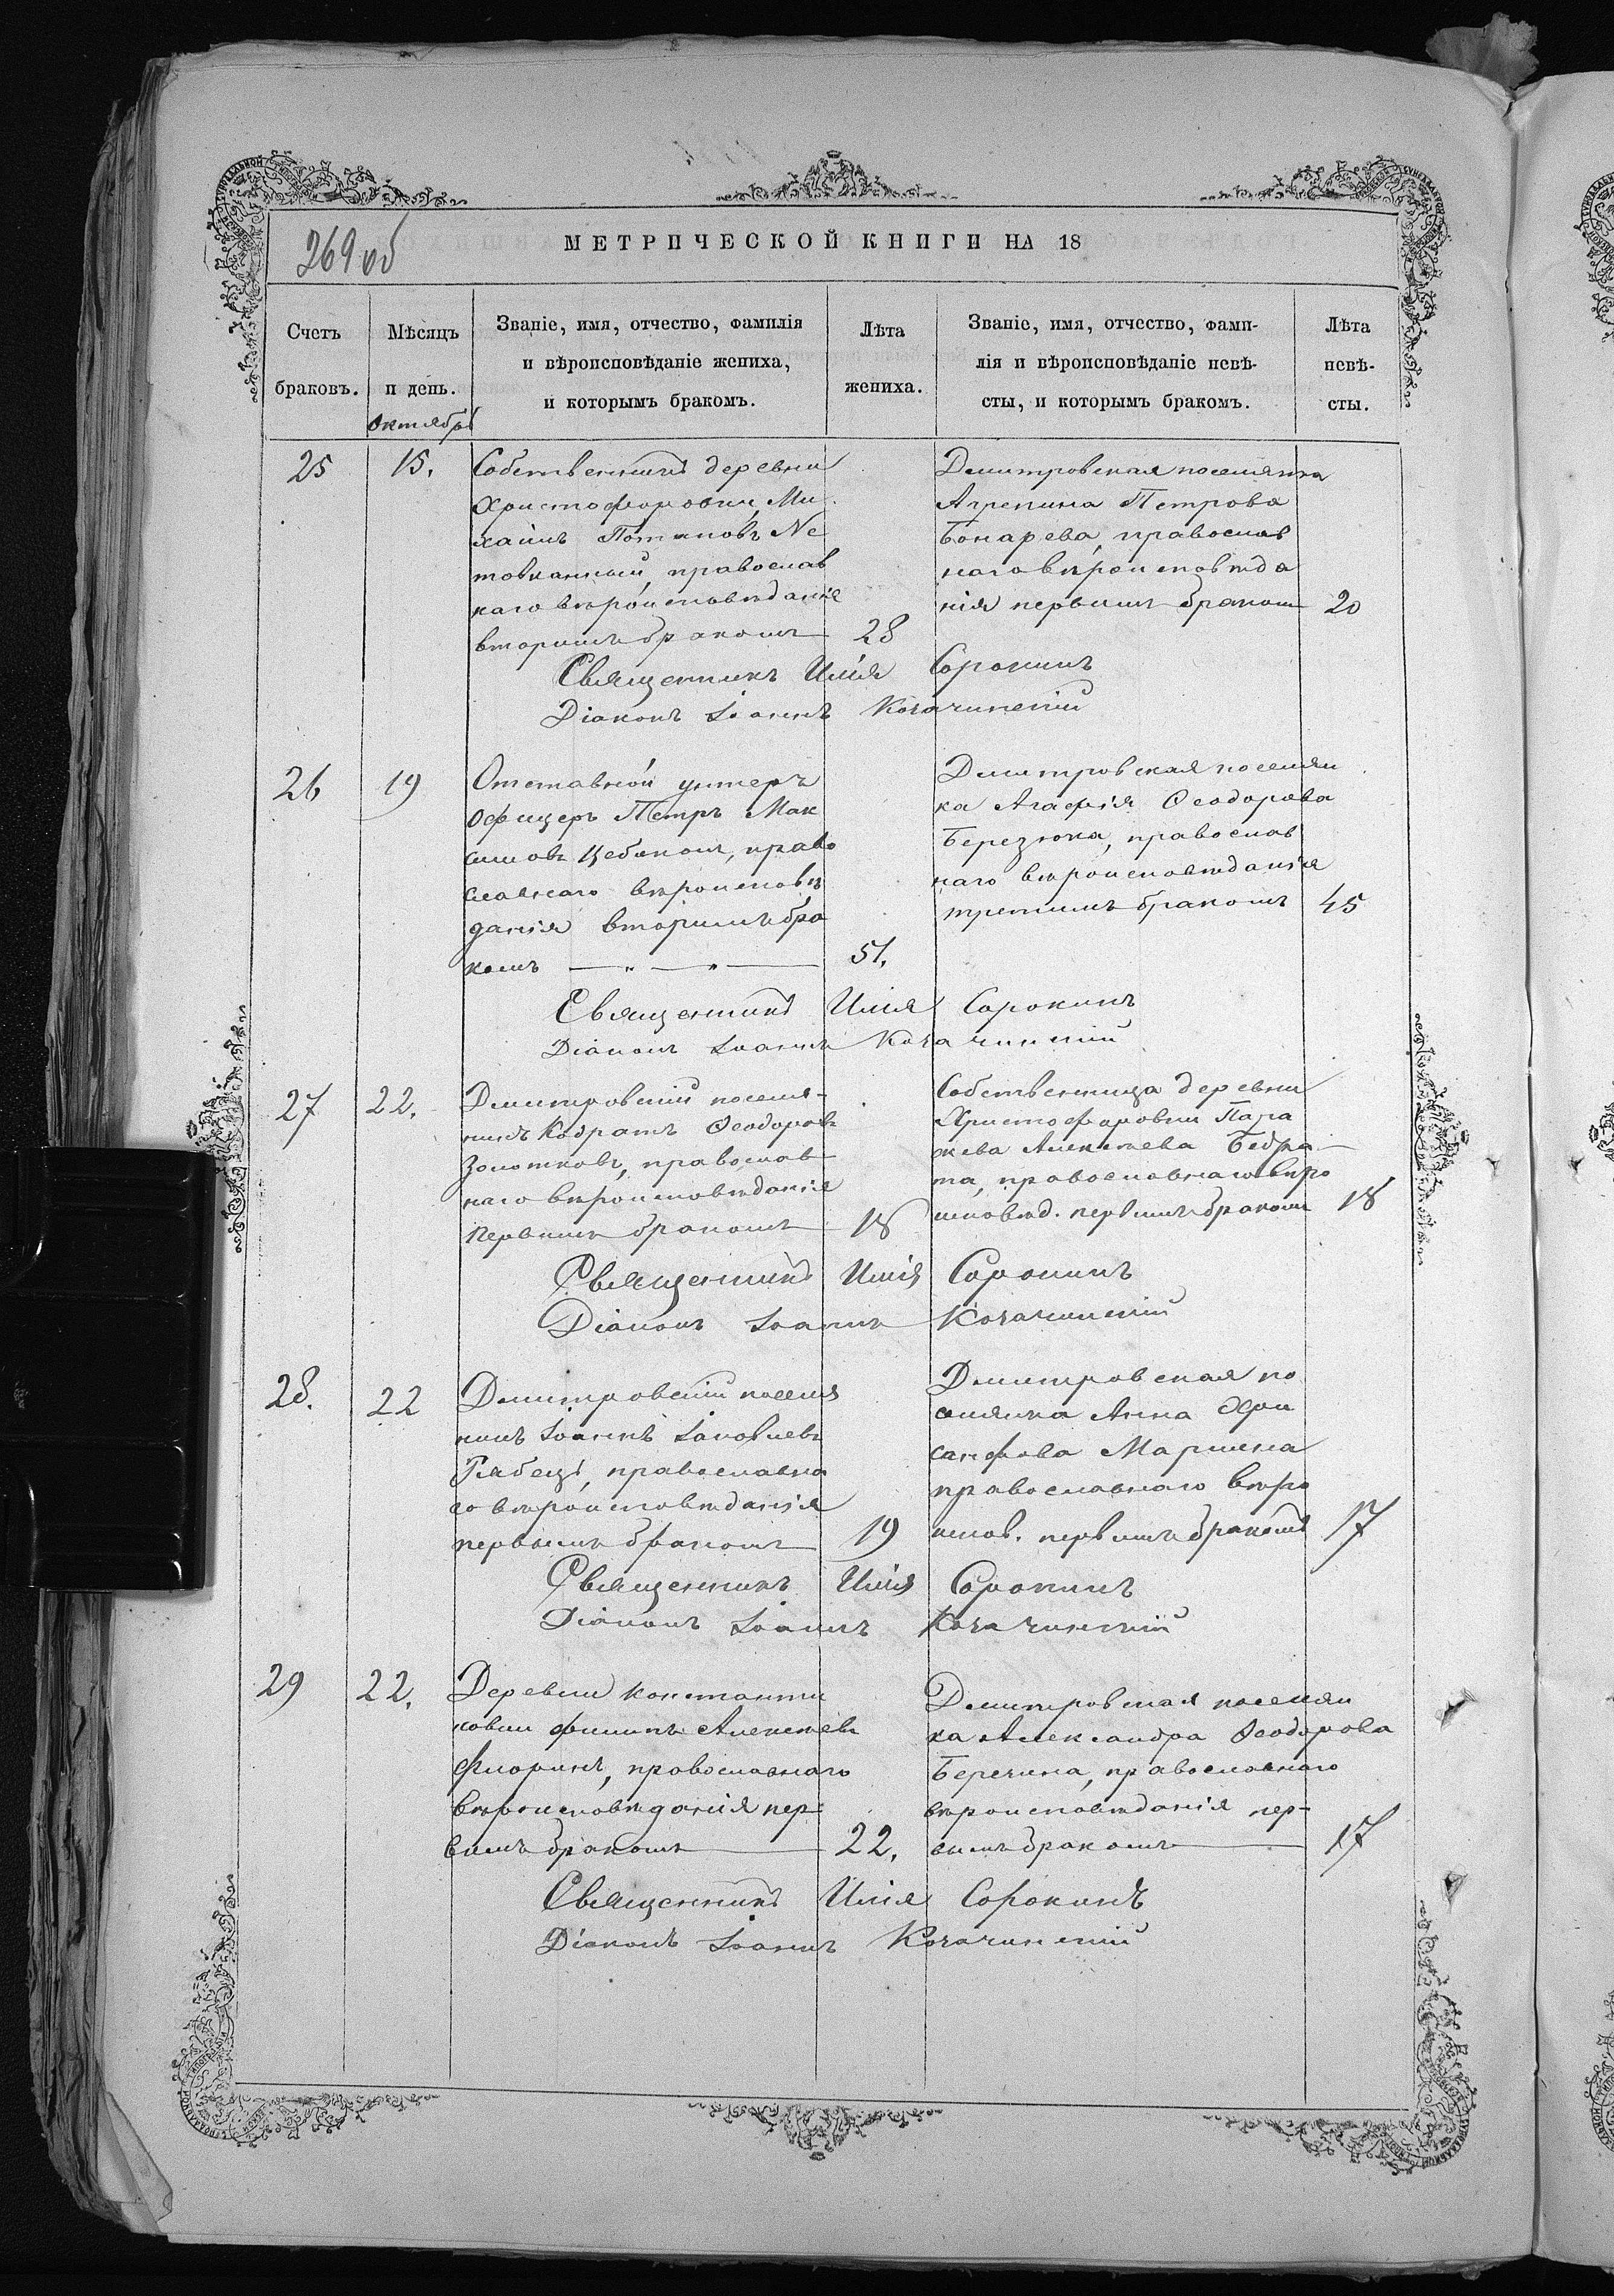 269 об
МЕТРИЧЕСКОЙ КНИГИ НА 18
Счетъ браковъ.
Мѣсяцъ и день.
Октябрь
Званіе, имя, отчество, фамилія
и вѣроисповѣданіе жениха,
и которымъ бракомъ.
Лѣта жениха.
Званіе, имя, отчество, фами-
лія и вѣроисповѣданіе невѣ-
сты, и которымъ бракомъ.
Лѣта невѣ-
сты.
25
15.
Собственникъ деревни
Христофоровки, Ми
хаилъ Потаповъ Не
товканный, православ
наго вѣроисповѣданія
вторымъ бракомъ
28
Дмитровская поселянка
Агрепина Петрова
Бонарева, православ
наго вѣроисповѣда
нія первымъ бракомъ
20
Священникъ Илія Сорокинъ
Діаконъ Іоаннъ
26
19
Отставной унтеръ
офицеръ Петръ Мак
симовъ право
славнаго вѣроисповѣ
данія вторымъ бра
комъ
51.
Дмитровская поселян
ка Агафія Ѳеодорова
Березюка, православ
наго вѣроисповѣданія
третимъ бракомъ
45
Священникъ Илія Сорокинъ
Діаконъ Іоаннъ
27
22.
Дмитровскій поселя-
нинъ Кодратъ Ѳеодоровъ
Золотковъ, православ
наго вѣроисповѣданія
первымъ бракомъ
18
Собственница деревни
Христофоровки Пара
жева Алексѣева Бедра
та, православнаго вѣро
исповѣд. первымъ бракомъ
18
Священникъ Илія Сорокинъ
Діаконъ Іоаннъ
28.
22
Дмитровскій поселя
нинъ Іоаннъ Іаковлевъ
Рябецъ, православна
го вѣроисповѣданія
первымъ бракомъ
19
Дмитровская по
селянка Анна Хри
санфова
православнаго вѣро
испов. первымъ бракомъ
17
Священникъ Илія Сорокинъ
Діаконъ Іоаннъ
29
22.
Деревни Константи
новки Филипъ Алексѣевъ
Флоринъ, православнаго
вѣроисповѣданія пер-
вымъ бракомъ
22.
Дмитровская поселян
ка Александра Ѳеодорова
православнаго
вѣроисповѣданія пер-
вымъ бракомъ
17
Священникъ Илія Сорокинъ
Діаконъ Іоаннъ